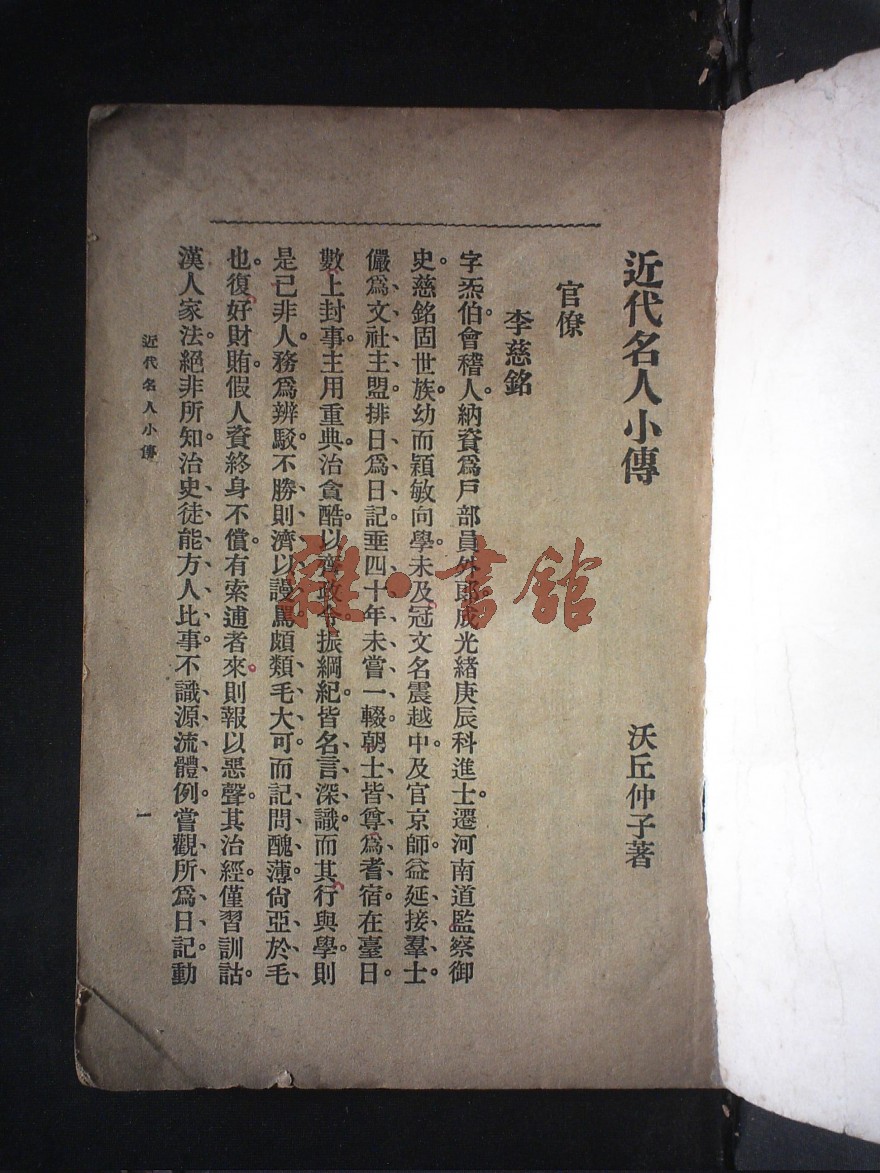 近代名人小傳
沃丘仲子著
官僚
李慈銘
字炁伯。會稽人。納資爲戶部員外郎。成光緒庚辰科進士。遷河南道監察御
史。慈銘固世族。幼而穎敏向學。未及冠。文名震越中。及官京師。益延接羣士。
儼爲文社主盟。排日爲日記。垂四十年未嘗一輟。朝士皆尊爲耆宿。在臺日。
數上封事。主用重典治貪酷。以齊政令。振綱紀。皆名言深識。而其行與學。則
是己非人。務爲辨駁。不勝則濟以謾罵。頗類毛大可。而記問醜薄。尙亞於毛
也。復好財賄。假人資終身不償。有索逋者來。則報以惡聲。其治經。僅習訓詁。
漢人家法。絕非所知。治史徒能方人比事。不識源流體例。嘗觀所爲日記。動
近代名人小傳
一
雜·書館